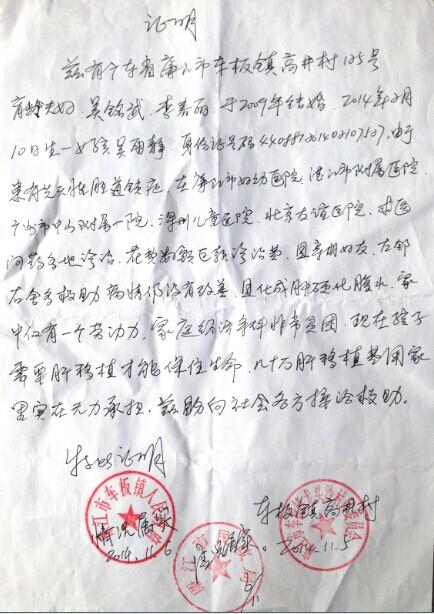 证明
兹有广东省廉江市车板镇高井村125号
育龄夫妇吴铭武、李春丽于2009年结婚 2014年2月
10日生一女孩吴雨静,身份证号码 由于
患有先天性胆道锁症,在廉江市妇幼医院,湛江市附属医院,
广州市中山附属一院,深圳儿童医院,北京友谊医院,求医
问药各地诊治,花费 巨额诊治费,且亲朋好友、左邻
右舍多救助病情仍没有改善,且化成肝硬化腹水,家
中仅有一个劳动力,家庭经济条件非常贫困,现在孩子
需要肝移植才能保住生命,几十万肝移植费用家
里实在无力承担,兹盼向社会各方捐洽救助。
特此证明
车板镇高井村
情况属实
2014.11.6
2014.11.5
情况属实。